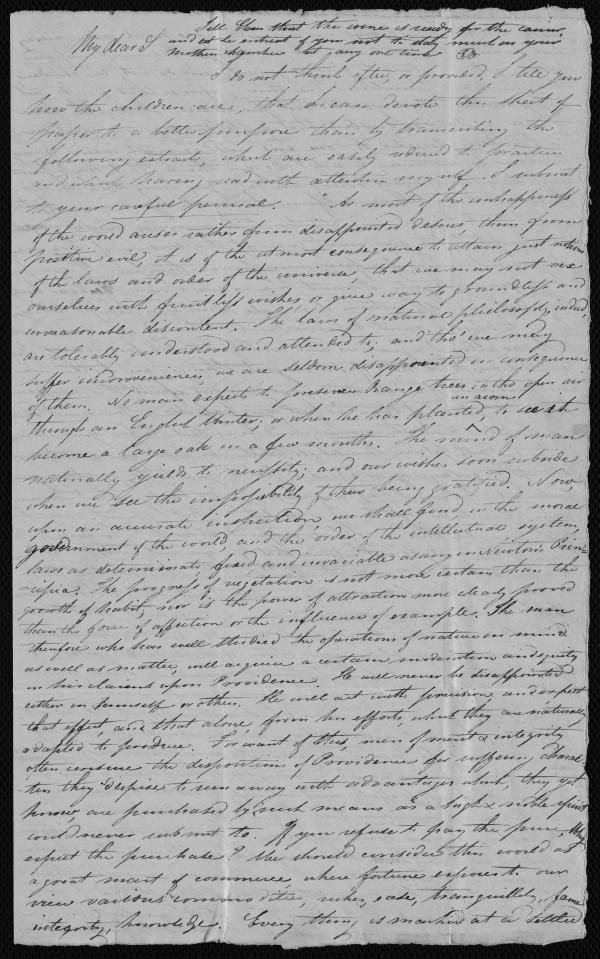 Tell Glen that the wine is ready for the
and to be entered if you not to day must on your
mother chamber let, any one time 33
My dear S
I do not think after, or provided, I tell you
how the children are, that I can devote this sheet of
paper to a better purpose than by transcribing the
following extract, what are easily reduced to practice
and which having read with attention myself I submit
to your careful perusal. "As most of the unhappiness
of the world arises rather from disappointed desires, than from
positive evil, it is of the utmost consequence to attain just notions
of the laws and order of the universe, that we may not vex
ourselves with fruitless wishes or give way to groundless and
unreasonable discontent. The laws of natural philosophy, indeed,
are tolerably understood and attended to; and tho' we may
suffer inconveniences, we are seldom disappointed in consequence
of them. No man expects to preserve Orange trees in the open air
through an English Winter; or when he has planted an acorn to see it
become a large oak in a few months. The mind of man
naturally yields to necessity; and our wishes soon subside
when we see the impossibility of their being gratified. Now,
upon an accurate inspection, we shall find, in the moral
government of the world and the order of the intellectual system,
laws as determinate fixed and invariable as any in Newton's Prin-
cipia. The progress of vegetation is not more certain than the
growth of habit, nor is the power of attraction more clearly proved
than the force of affection or the influence of example. The man
therefore who has well studied the operations of nature in mind
as well as matter, will acquire a certain moderation and equity
in his claims upon Providence. He will never be disappointed
either in himself or others. He will act with precision and expect
that effect, and that alone, from his efforts, which they are naturally
adapted to produce. For want of this, men of merit & integrity
often censure the dispositions of Providence for suffering charac-
ters they despise to run away with advantages which, they yet
know, are purchased by such means as a high & noble spirit
could never submit to. If you refuse to pay the price, Why
expect the purchase? We should consider this world as
a great mart of commerce, where fortune exposes to our
view various commodities, riches, ease, tranquillity, fame
integrity, knowledge. Every thing is marked at a settled